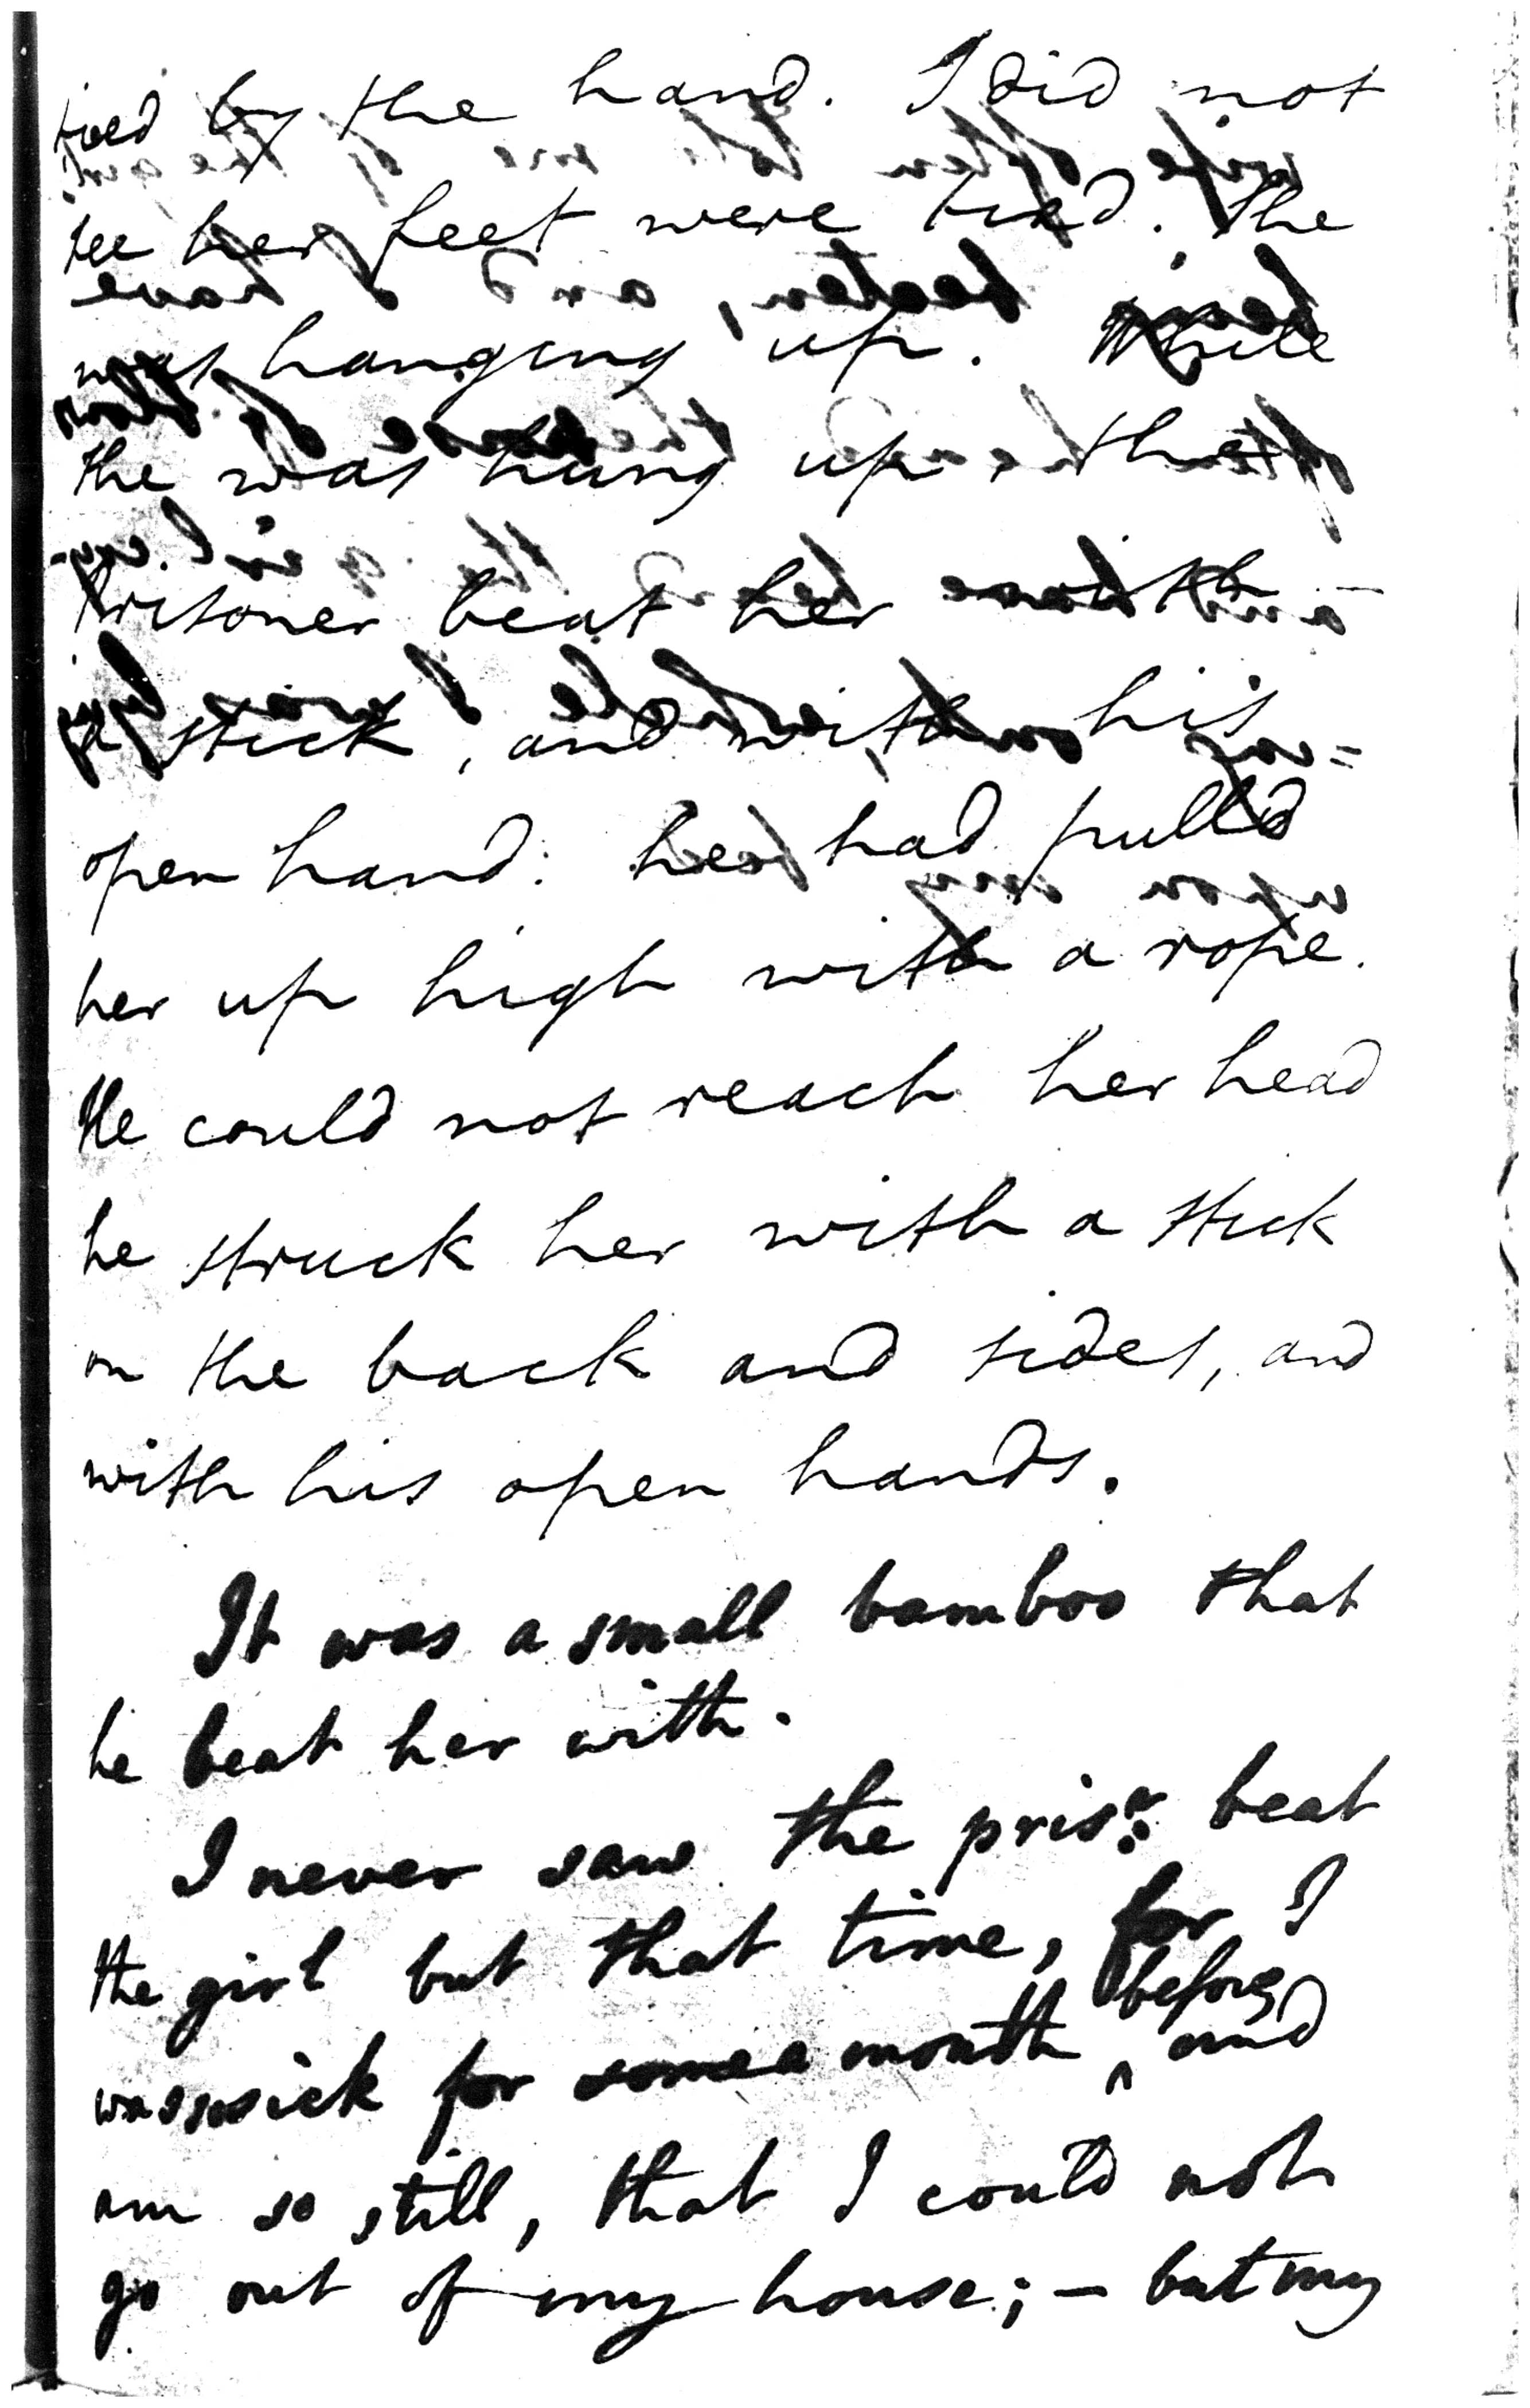 tied by the hand. I did not
see her feet were tied. She
was hanging up. While
she was hung up, the
Prisoner beat her with
a stick, and with his
open hand: he had pulld
her up high with a rope.
He could not reach her head
he struck her with a stick
on the back and sides, and
with his open hands.
It was a small bamboo that
he beat her with.
I never saw the prisr. beat
the girl but that time, for I
was so sick for some a month ^ before, and
am so still, that I could not
go out of my house; — but my